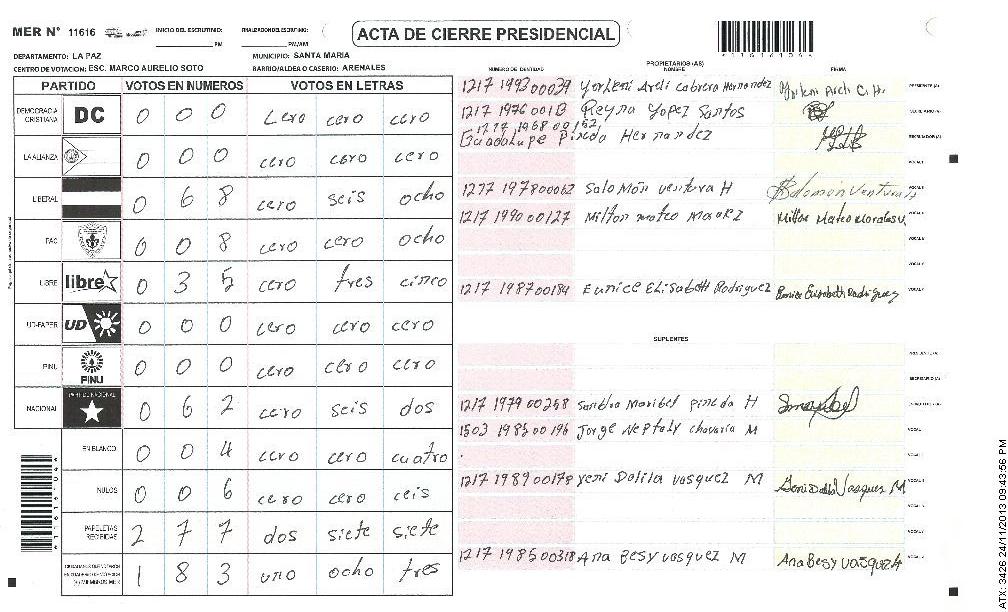 MER Nº 11616 INICIO DEL ESCRUTINIO: PM FINALIZACION ESCRUTINIO: PM/AM
ACTA DE CIERRE PRESIDENCIAL
DEPARTAMENTO: LA PAZ MUNICIPIO: SANTA MARIA
CENTRO DE VOTACION: ESC. MARCO AURELIO SOTO BARRIO/ALDEA O CASERIO: ARENALES
PARTIDO VOTOS EN NUMEROS VOTOS EN LETRAS
DEMOCRACIA CRISTIANA DC 0 0 0 cero cero
LA ALIANZA 0 0 0 cero cero cero
LIBERAL 0 6 8 cero seis ocho
PAC 0 0 8 cero cero ocho
LIBRE libre 0 3 5 cero tres cinco
UD-FAPER UD 0 0 0 cero cero cero
PINU PINU 0 0 0 cero cero cero
NACIONAL 0 6 2 cero seis dos
EN BLANCO 0 0 4 cero cero cuatro
NULOS 0 0 6 cero cero ceis
PAPELETAS RECIBIDAS 2 7 7 dos siete siete
1 8 3 uno ocho tres
PROPIETARIOS (AS)
NUMERO DE IDENTIDAD NOMBRE FIRMA
1217 1993 00039 Yorleni Arli Cabrera Hernandez PRESIDENTE (A)
1217 1976 0013 Reyna Lopez Santos SECRETARIO (A)
1217 1968 00152
Guadalupe Pineda Hernandez ESCRUTADOR (A)
VOCAL I
1217 197800062 Salomón Ventura H Salomon Ventura H
1217 1990 00127 Milton mateo
VOCAL IV
1217 1987 00184 Eunice Elisabeth Rodriguez Eunice Elisabeth Rodriguez
SUPLENTES
PRESIDENTE (A)
SECRETARIO (A)
1217 1979 00258 Sandra Maribel pineda H
1503 1985 00196 Jorge Neptaly chavaria M VOCAL I
1217 1989 00178 Yeni Dalila vasquez M Yeni Dalila Vasquez M
1217 1985 00318 Ana Besy vasquez M Ana Besy vasquez M
ATX: 3426 24/11/2013 09:43:56 PM